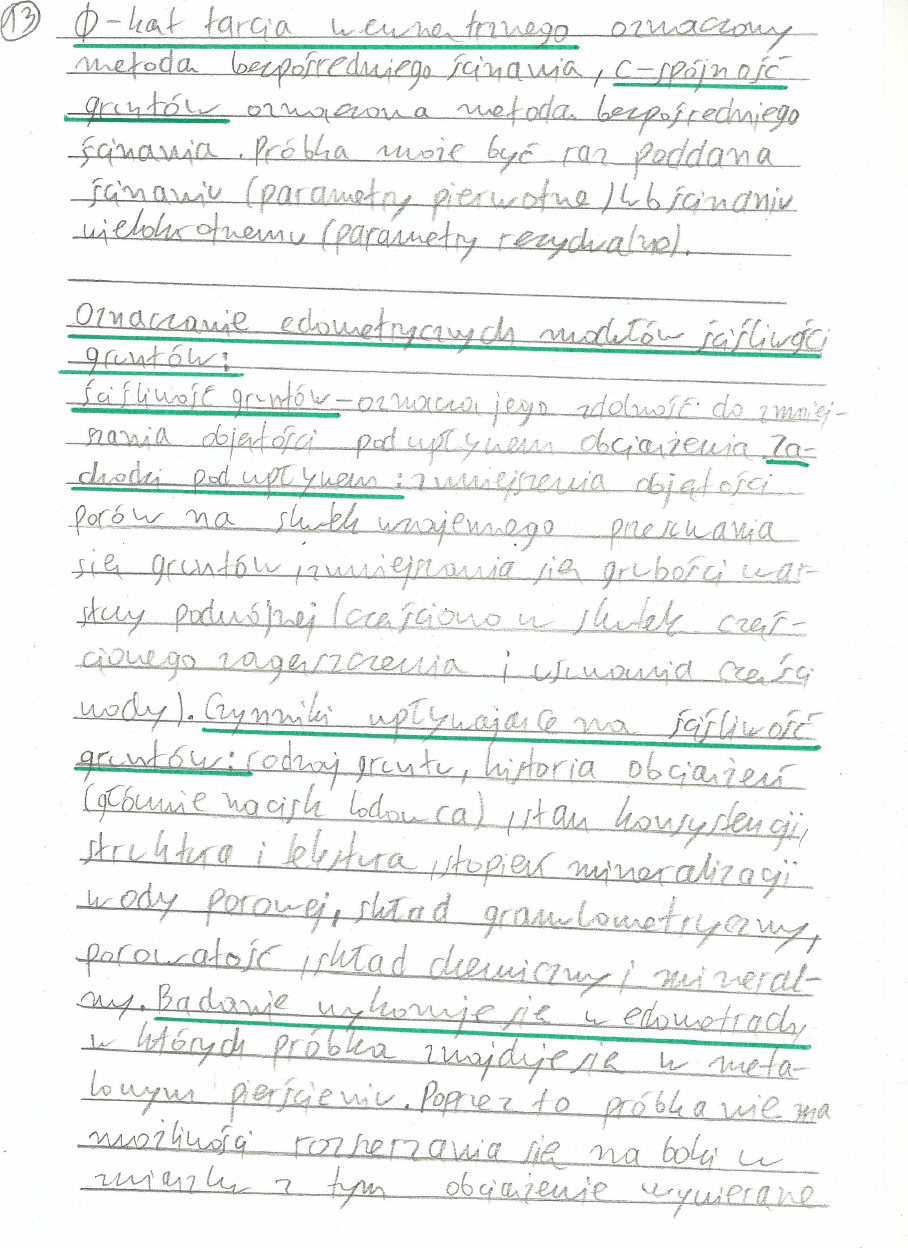 13
ϕ-kąt tarcia wewnętrznego oznaczony
metodą bezpośredniego ścinania, c-spójność
gruntów oznaczona metodą bezpośredniego
ścinania. Próbka może być raz poddana
ścinaniu (parametry pierwotne) lub ścinaniu
wielokrotnemu (parametry rezydualne).
Oznaczanie edometrycznych modułów ściśliwości
gruntów:
Ściśliwość gruntów-oznacza jego zdolność do zmniej-
szania objętości pod wpływem obciążenia. Za-
chodzi pod wpływem: zmniejszenia objętości
porów na skutek wzajemnego przesuwania
się gruntów, zmniejszania się grubości war-
stwy podwójnej (częściowo w skutek częś-
ciowego zagęszczenia i usuwania części
wody). Czynniki wpływające na ściśliwość
gruntów: rodzaj gruntu, historia obciążeń
(głównie nacisk lodowca), stan konsystencji,
struktura i tekstura, stopień mineralizacji
wody porowej, skład granulometryczny,
porowatość, skład chemiczny i mineral-
ny. Badanie wykonuje się w edometrach,
w których próbka znajduje się w meta-
lowym pierścieniu. Poprzez to próbka nie ma
możliwości rozszerzania się na boki w
związku z tym obciążenie wywierane